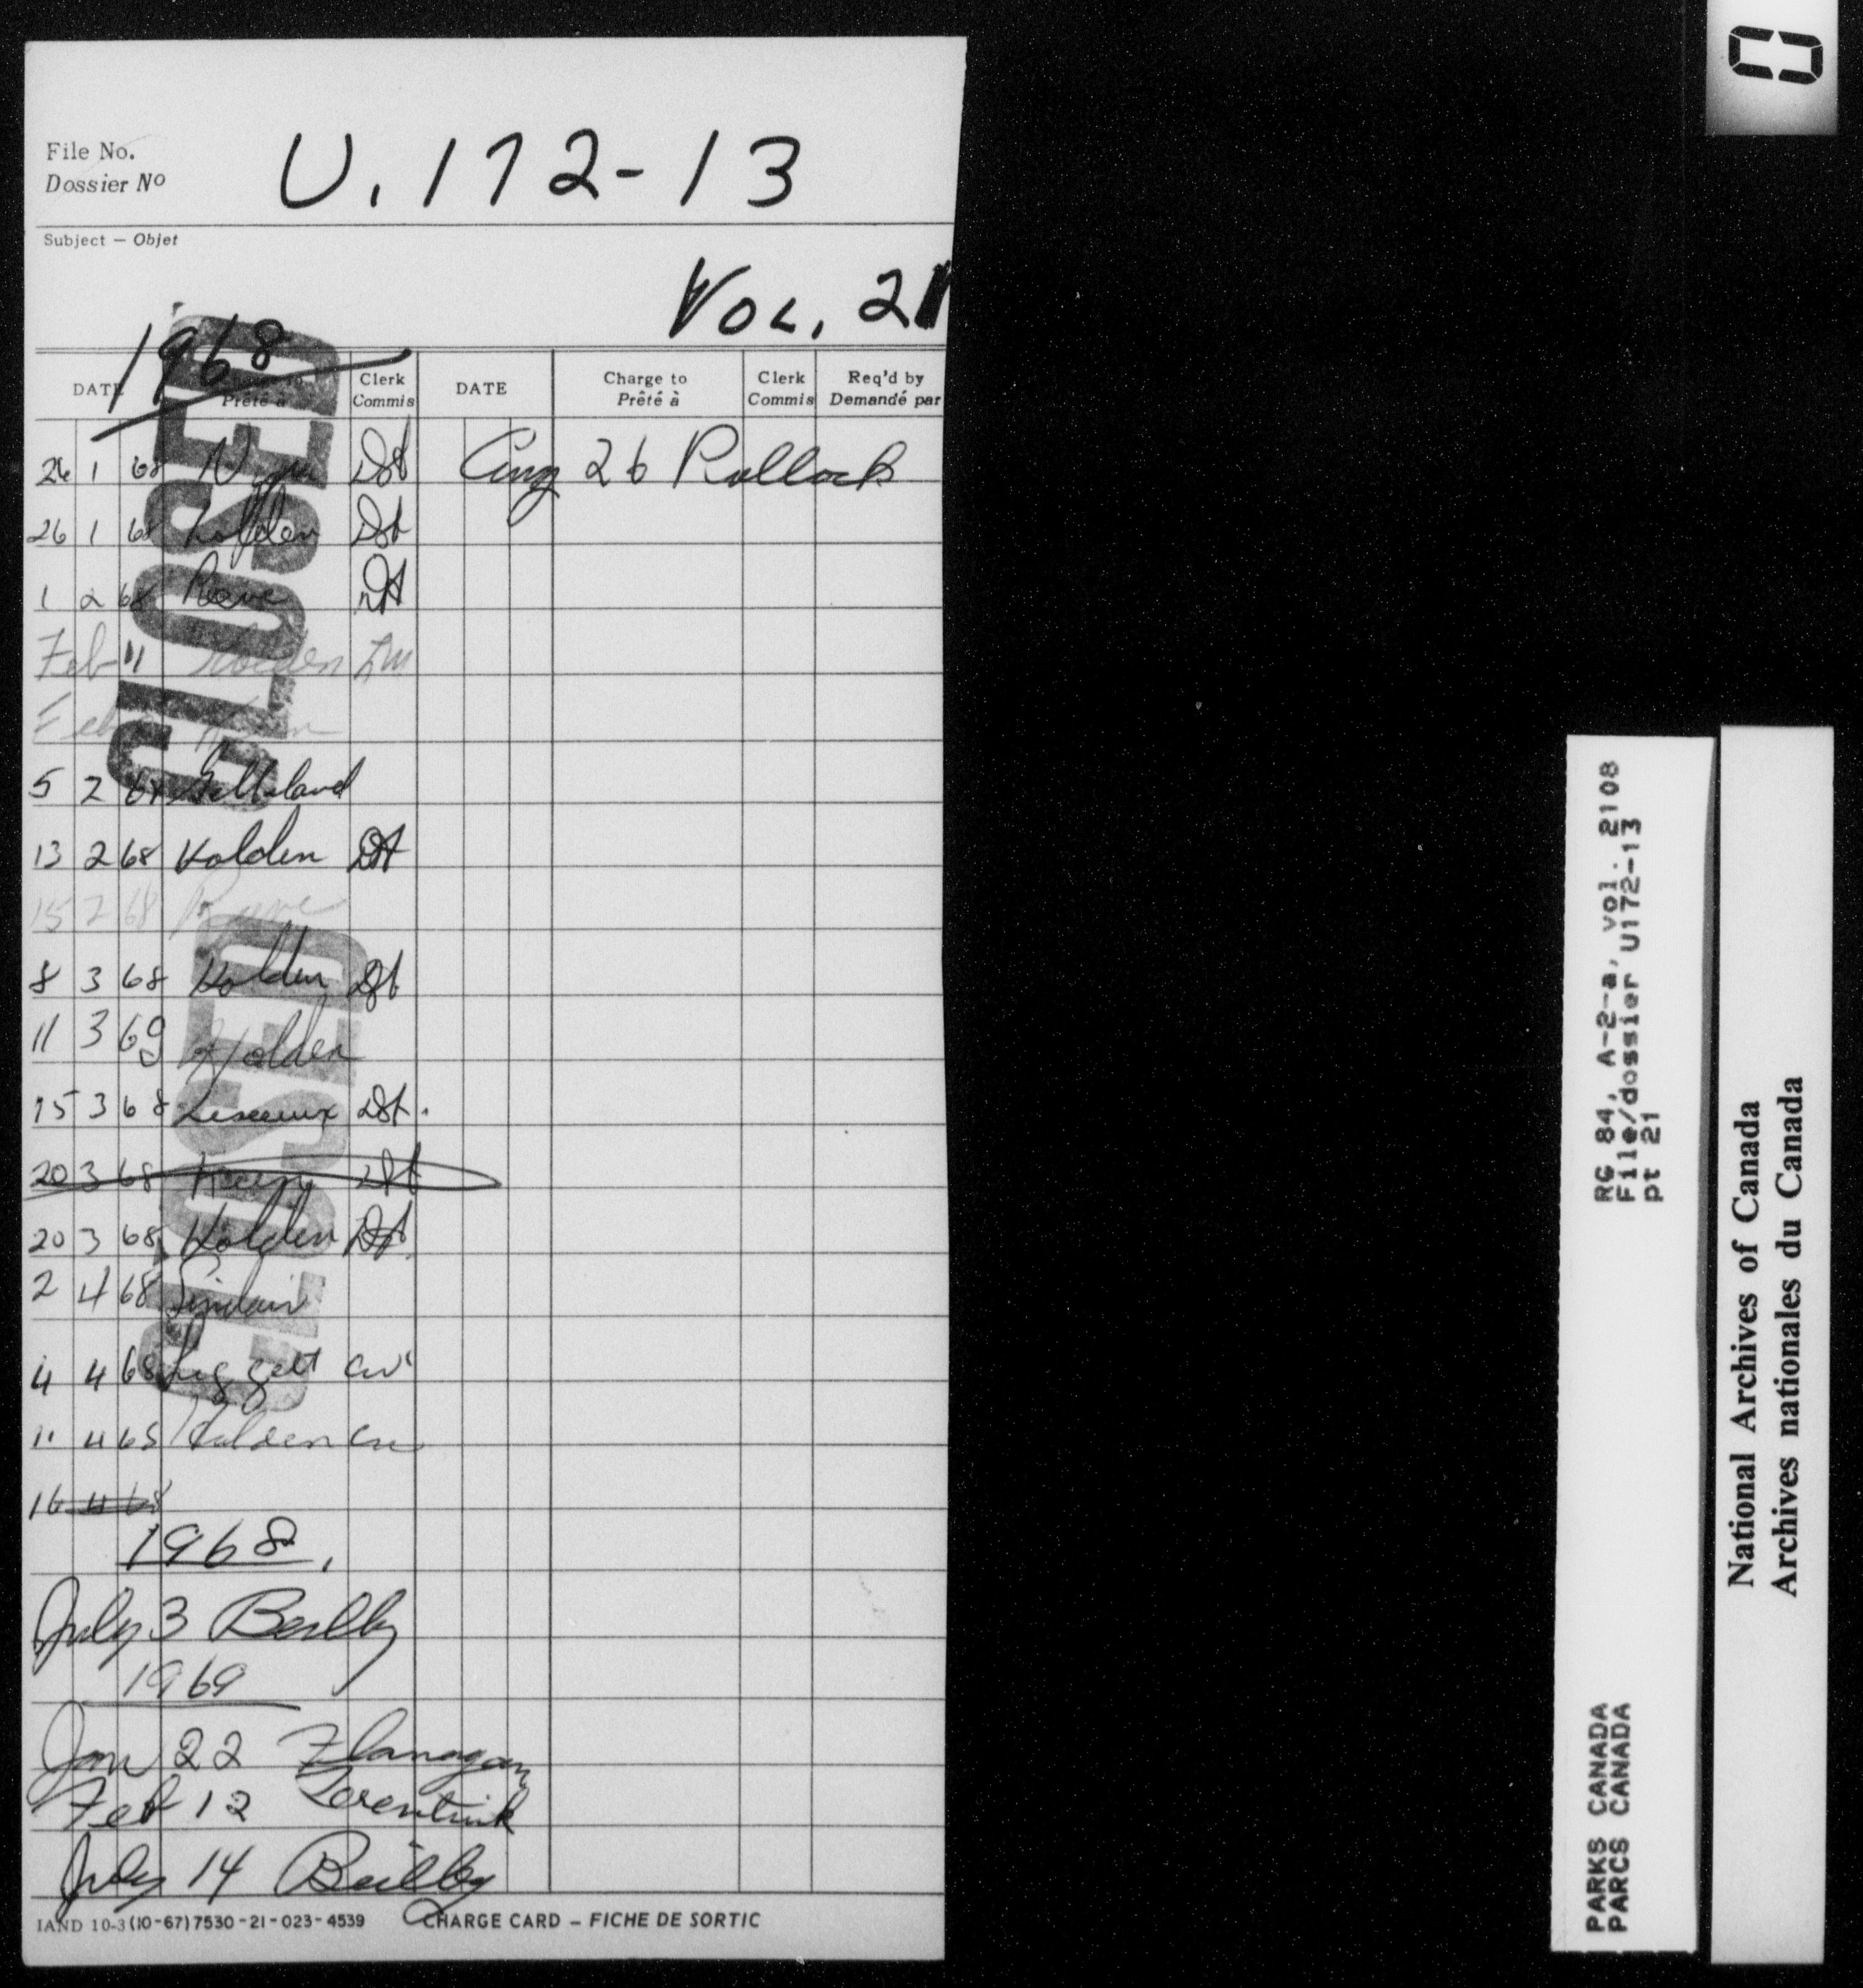 File No.
Dossier Nº
U. 172-13
Subject — Objet
VOL. 21
1968
DATE Prêté à Clerk Commis DATE Charge to Prêté à Clerk Commis Req'd by Demandé par
CLOSED
26 1 68 Dst Aug 26 Pollock
26 1 68 Dst
1 2 68 Reeve Dst
Feb 11 Holden Lm
Feb
5 2 68 Gilliland
13 2 68 Holden Dst
15 2 68 Reeve
8 3 68 Holden Dst
11 3 69 Holden
15 3 68 Lesaux Dst.
20 3 68 Dst
20 3 68 Holden Dst
2 4 68 Sinclair
4 4 68 Leggett CW
11 4 68 Holden CW
16 4 68
CLOSED
1968.
July 3 Beilby
1969
Jan 22 Flanagan
Feb 12 Lorentink
July 14 Beilby
IAND 10-3 (10-67) 7530-21-023-4539 CHARGE CARD – FICHE DE SORTIC
RG 84, A-2-a, vol. 2108
File/dossier U172-13
pt 21
PARKS CANADA
PARCS CANADA
National Archives of Canada
Archives nationales du Canada